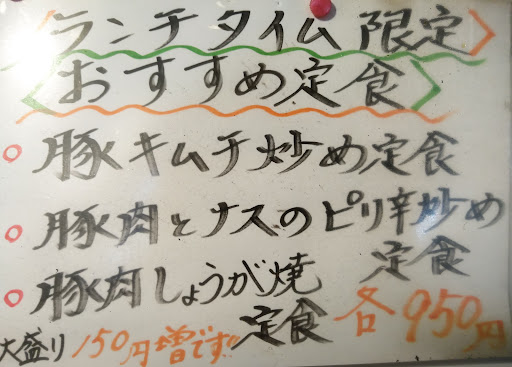 〈ランチタイム限定〉
〈おすすめ定食〉
○ 豚キムチ炒め定食
○ 豚肉とナスのピリ辛炒め
定食
○ 豚肉しょうが焼
定食 各950円
大盛り150円増です!!